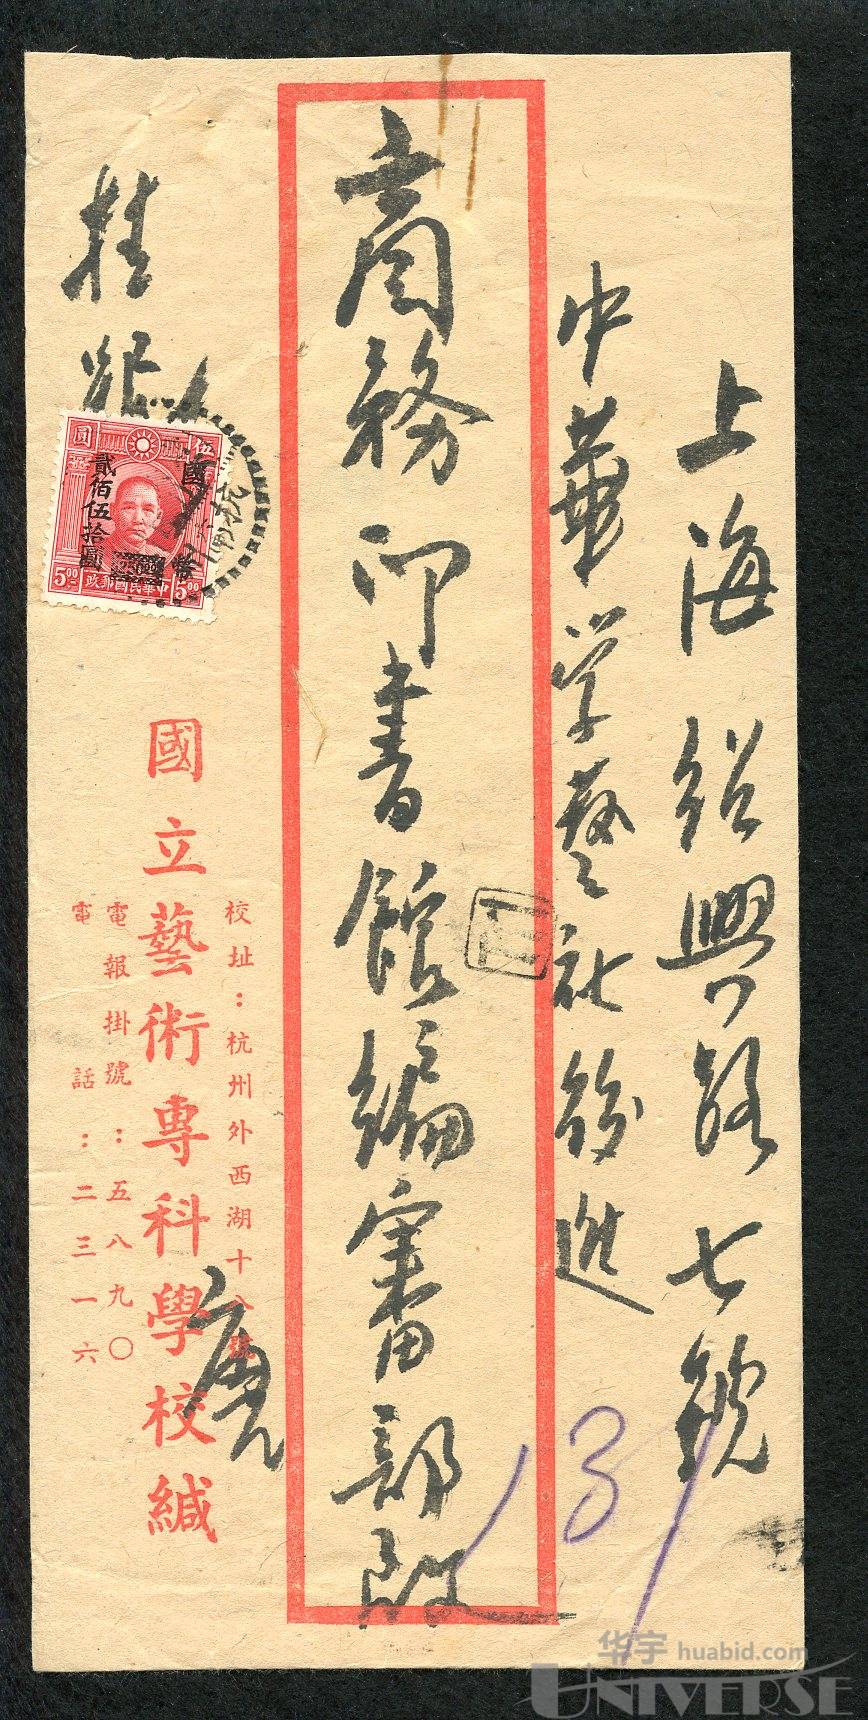 上海紹興路七號
中華学藝社後進
商務印書館編審部啟
挂號
國立藝術專科學校緘
校址：杭州外西湖十八號
電報掛號：五八九〇
電話：二三一六
伍圓
國幣
貳佰伍拾圓
5.00 中華民國郵政 5.00
杭州
13
华宇 huabid.com
UNIVERSE